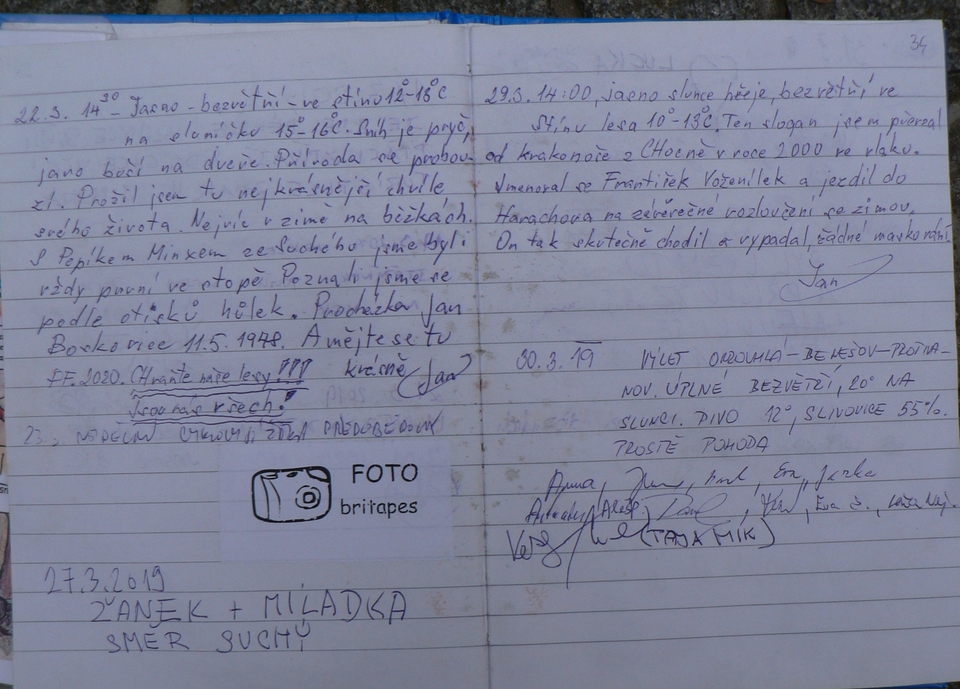 22.3. 14³⁰ Jasno - bezvětří - ve stínu 12°-13°C
na sluníčku 15°-16°C. Sníh je pryč,
jaro buší na dveře. Příroda se probou-
zí. Prožil jsem tu nejkrásnější chvíle
svého života. Nejvíc v zimě na běžkách.
S Pepíkem Minxem ze Suchého jsme byli
vždy první ve stopě. Poznali jsme se
podle otisků hůlek. Procházka Jan
Boskovice 11.5. 1948. A mějte se tu
FF. 2020. CHraňte naše lesy!!! krásně Jan
Jsou nás všech!
23. NEDĚLNÍ PŘEDOBĚDOVÁ
FOTO
britapes
27.3.2019
ŽANEK + MILADKA
SMĚR SUCHÝ
34
29.3. 14:00, jasno slunce hřeje, bezvětří ve
stínu lesa 10°-13°C. Ten slogan jsem převzal
od krakonoše z CHocně v roce 2000 ve vlaku.
Jmenoval se František Voženílek a jezdil do
Harachova na závěrečné rozloučení se zimou.
On tak skutečně chodil a vypadal, žádné maškarádní
Jan
30.3. 19 VÝLET OKROUHLÁ-BENEŠOV-PROTIVA-
NOV. ÚPLNÉ BEZVĚTŘÍ, 20° NA
SLUNCI. PIVO 12°, SLIVOVICE 55%.
PROSTĚ POHODA
Anna, Eva, Jarka
Eva Č.,
(TAJA MÍK)